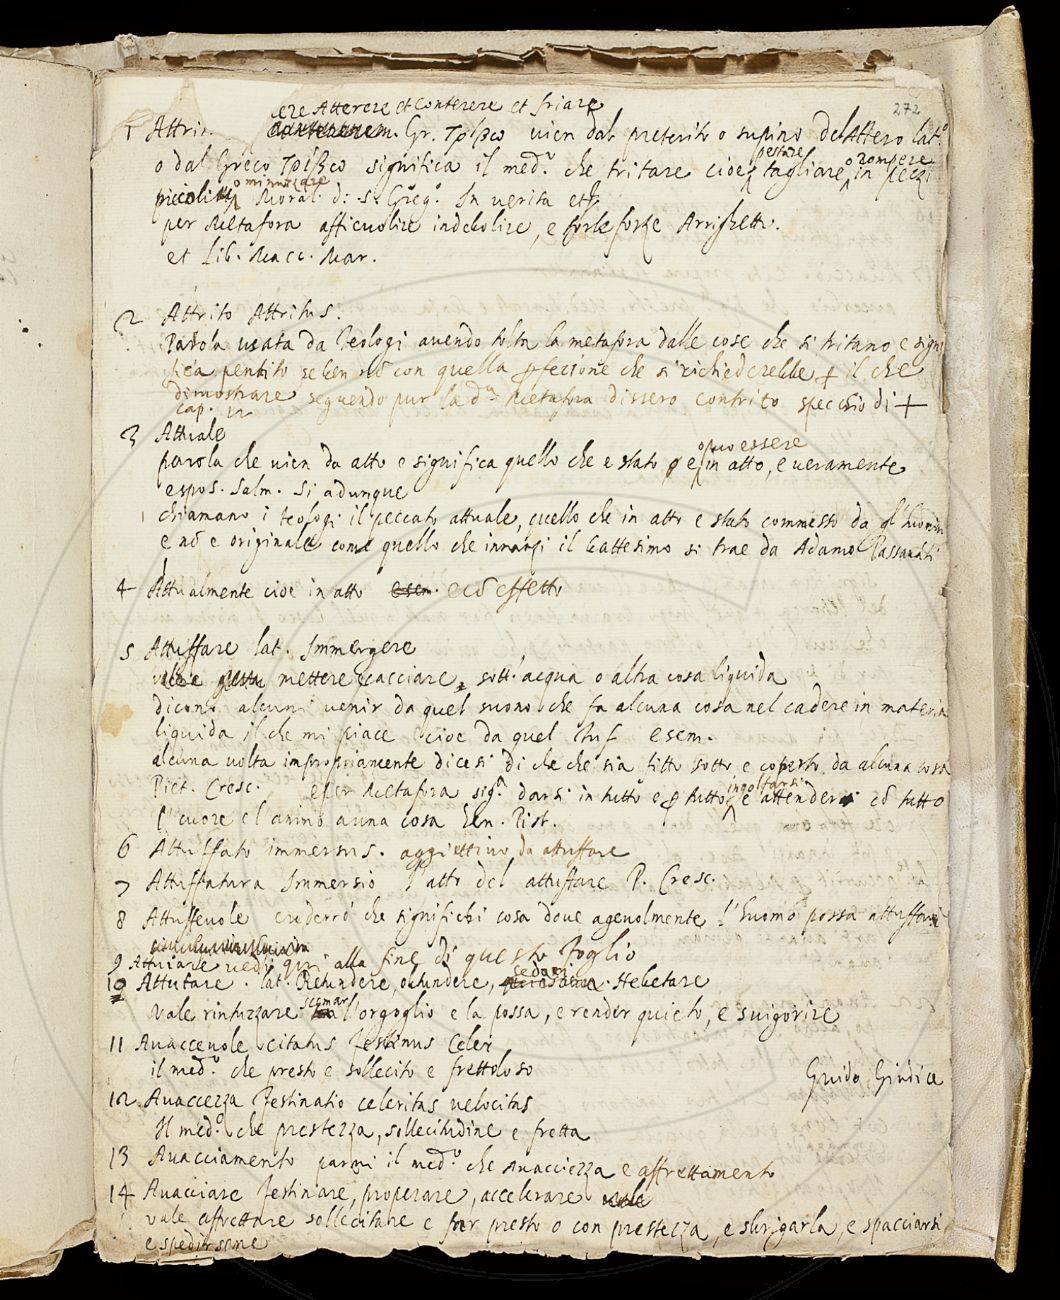 272
ere Atterere et conterere et friare
1 Attri. Gr. Τρίβω vien dal preterito o supino del Attero lat.º
o dal Greco Τρίβω significa il med.º che tritare cioe pestare tagliare o rompere in pezzi
piccoli o minuzzare Moral. di S. Greg.º In verita
per Metafora affievolire indebolire, e forse forse Arrighett.
et lib. Macc. Mar.
2 Attrito Attritus.
Parola usata da Teologi avendo tolta la metafora dalle cose che si tritano e signi
fica pentito se ben nō con quella pfezione che si richiederebbe + il che
dimostrare seguendo pur la d.ª Metafora dissero contrito specchio di +
cap. 12
3 Attuale
parola che vien da atto e significa quello che e stato o e o puo essere in atto, e veramente
espos. Salm. Si adunque
chiamano i teologi il peccato attuale, quello che in atto e stato commesso da gl'huomini
e nō e originale come quello che innanzi il battesimo si trae da Adamo Passavanti
4 Attualmente cioe in atto esem. e cō effetto
5 Attuffare lat. Immergere
vale mettere cacciare sott'acqua o altra cosa liquida
dicono alcuni venir da quel suono che fa alcuna cosa nel cadere in materia
liquida il che mi piace cioe da quel tuf esem.
alcuna volta impropriamente dicesi di che che sia fitto sotto e coperto da alcuna cosa
Piet. Cresc. e per Metafora sig.ª darsi in tutto e p tutto ingolfarsi e attender cō tutto
l'cuore e l'animo a una cosa Sen. Pist.
6 Attuffato immersus. aggiettivo da attuffare
7 Attuffatura Immersio l'atto del attuffare P. Cresc.
8 Attuffevole crederrò che significhi cosa dove agevolmente l'huomo possa attuffarsi
9 Attuiare vedi qui alla fine di questo foglio
10 Attutare. lat. Retundere, obtundere, sedare. Hebetare
Vale rintuzzare scemar l'orgoglio e la possa, e render quieto, e svigorire
11 Avaccevole citatus festinus celer
il med.º che presto e sollecito e frettoloso Guido Giudice
12 Avaccezza festinatio celeritas velocitas
Il med.º che prestezza, sollecitudine e fretta
13 Avacciamento parmi il med.º che avacciezza e affrettamento
14 Avacciare festinare, properare, accelerare vale
vale affrettare sollecitare e far presto o con prestezza, e sbrigarla, e spacciarsi
e spedirsene